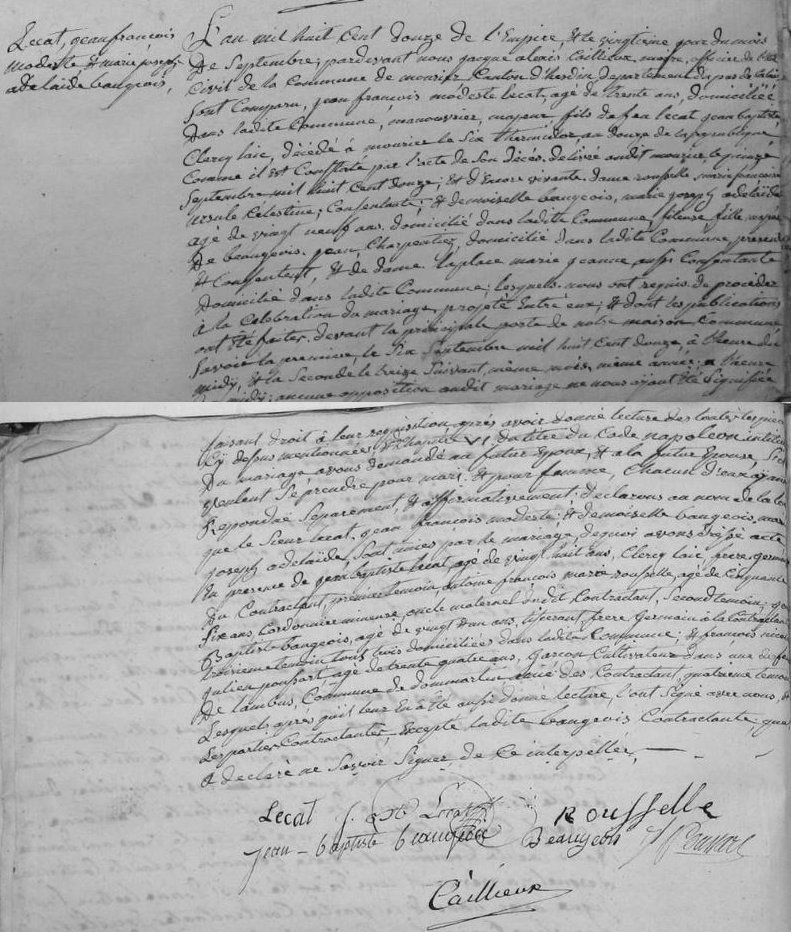 Lecat, jean françois
modeste & marie joseph
adelaide baugeois,
L'an mil huit Cent douze de l'Empire, & le vingtième jour du mois
De Septembre, pardevant nous jacque alexis Caillieux, maire, officier de l'état
Civil de la Commune de mouriez Canton d'hesdin departement du pas de Calais
Sont Comparu, jean francois modeste lecat, agé de trente ans, domicilié
Dans ladite Commune, manouvrier, majeur, fils de feu lecat jean Baptiste
Clercq laic, décédé à mouriez le Six thermidor an douze de la republique
Comme il est Constaté par l'acte de Son Décès, delivré audit mouriez le quinze
Septembre mil huit Cent douze; & d'Encore vivante dame rousselle marie francoise
ursule Celestine, Consentante; & demoiselle baugeois, marie joseph adelaïde
agé de vingt neuf ans, domicilié dans ladite Commune, fileuse, fille majeure
De beaugeois jean, Charpentier, domicilié dans ladite Commune present
& Consentent, & de dame Laplace marie jeanne aussi Consentante
Domicilié dans ladite Commune; lesquels nous ont requis de procéder
à la Celebration du mariage projeté Entre eux; & dont les publications
ont été faites devant la principale porte de notre maison Commune
Savoir la premiere, le Six Septembre mil huit Cent douze, à l'heure de
midi, & la Seconde le treize Suivant, même mois, même année, a l'heure
de midi; aucune opposition audit mariage ne nous ayant été Signifiée
faisant droit à leur requisition, après avoir donné lecture des toutes les pieces
Cy dessus mentionnées & du Chapitre VI du titre du Code napoleon intitulé
Du mariage avons demandé au futur Epoux & a la future Epouse, S'ils
veulent Se prendre pour mari & pour femme, Chacun d'eux ayant
Repondu Separement, & affirmativement, declarons au nom de la loi
que le Sieur lecat, jean françois modeste & demoiselle baugeois, marie
joseph adelaïde, Sont unies par le mariage, dequoi avons dressé acte
En presence de jean baptiste lecat, agé de vingt huit ans, Clercq laic, frere germain
Du Contractant, premier temoin, antoine francois marie rousselle, agé de Cinquante
Six ans, Cordonnier, oncle maternel dudit Contractant, Second temoin; jean
Baptiste baugeois, agé de vingt un ans, tisserant, frere Germain à la Contractante
troisieme temoin, tous trois domiciliées dans ladite Commune; & francois nicolas
julien poussart, agé de trente quatre ans, Garcon Cultivateur dans une des fermes
De lambus, Commune de dommartin, amie des Contractant, quatrieme temoin
Lesquels après qu'il leur En a été aussi donné lecture, l'ont Signé avec nous, &
Les parties Contractantes, Excepté ladite baugeois Contractante, qui
A declaré ne Savoir Signer, de Ce interpellée,
Lecat J. Bte Lecat Rousselle
jean-baptiste beaugeois Beaugeois Poussart
Caillieux